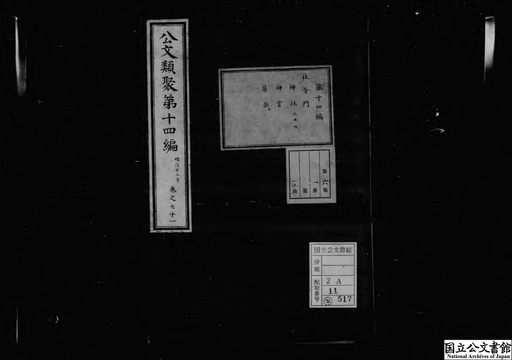 公文類聚第十四編
明治廿三年
巻之七十一
第十四編
社寺門
神社
神官
葬儀
第六類
国立公文書館
分類
配架番号
2A
11
類 517
国立公文書館
National Archives of Japan